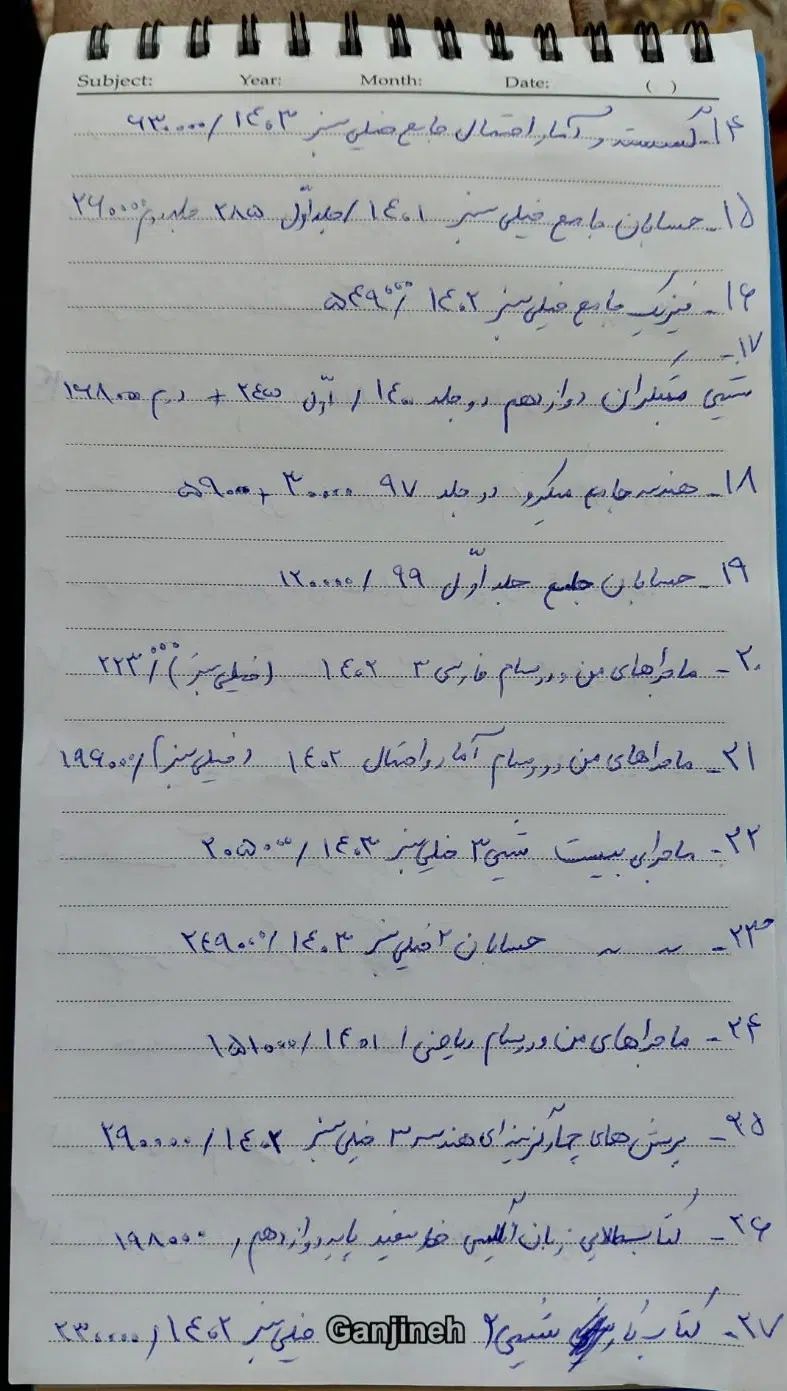 Subject: Year: Month: Date: ( )
۱۴- گسسته و آمار احتمال جامع خیلی سبز ۱۴۰۳ / ۶۳۰۰۰۰
۱۵- حسابان جامع خیلی سبز ۱۴۰۱ / جلد اوّل ۲۸۵ جلد دوم ۲۶۰۰۰۰
۱۶- فیزیک جامع خیلی سبز ۱۴۰۲ / ۵۴۹۰۰۰
۱۷-
شیمی مبتکران دوازدهم دو جلد ۱۴۰۰ / اوّل + دوم ۱۶۸۰۰۰
۱۸- هندسه جامع میکرو دو جلد ۹۷ ۳۰۰۰۰ + ۵۹۰۰۰
۱۹- حسابان جامع جلد اوّل ۹۹ / ۱۲۰۰۰۰
۲۰- ماجراهای من و درسام فارسی ۳ ۱۴۰۲ (خیلی سبز) / ۲۲۳۰۰۰
۲۱- ماجراهای من و درسام آمار و احتمال ۱۴۰۲ (خیلی سبز) / ۱۹۶۰۰۰
۲۲- ماجرای بیست شیمی ۳ خیلی سبز ۱۴۰۳ / ۲۰۵۰۰۰
۲۳- ~ ~ حسابان ۲ خیلی سبز ۱۴۰۳ / ۲۴۹۰۰۰
۲۴- ماجراهای من و درسام ریاضی ۱ ۱۴۰۱ / ۱۵۱۰۰۰
۲۵- پرسش های چهارگزینه ای هندسه ۳ خیلی سبز ۱۴۰۲ / ۲۹۰۰۰۰
۲۶- کتاب طلایی زبان انگلیسی خط سفید پایه دوازدهم / ۱۹۸۰۰۰
۲۷- کتاب کار شیمی ۲ Ganjineh خیلی سبز ۱۴۰۲ / ۲۳۰۰۰۰